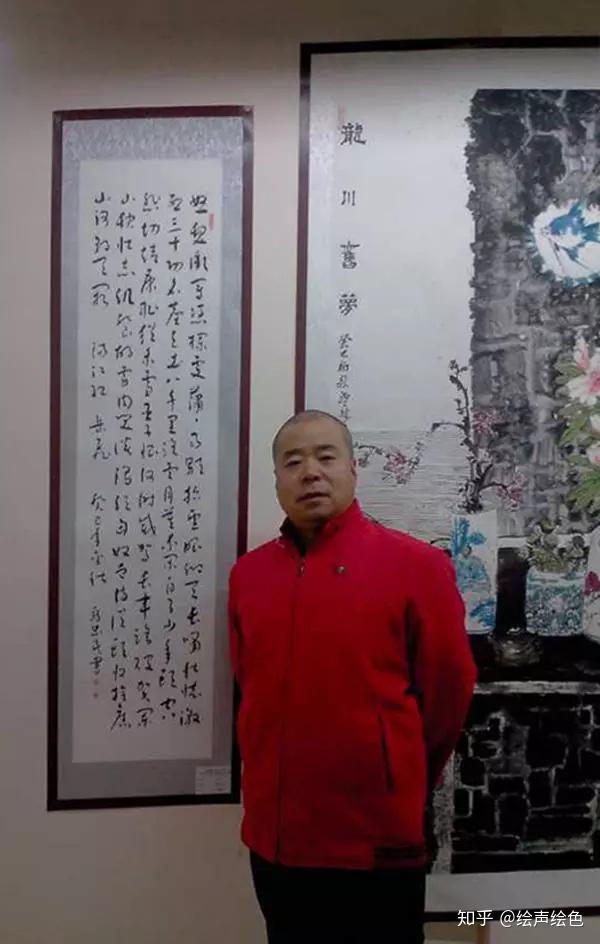 怒髮衝冠憑欄處瀟瀟雨歇抬望眼仰天長嘯壯懷激
烈三十功名塵與土八千里路雲和月莫等閒白了少年頭空
悲切靖康恥猶未雪臣子恨何時滅駕長車踏破賀蘭
山缺壯志飢餐胡虜肉笑談渴飲匈奴血待從頭收拾舊
山河朝天闕 滿江紅 岳飛 癸巳年
龍川舊夢
癸巳
知乎 @绘声绘色